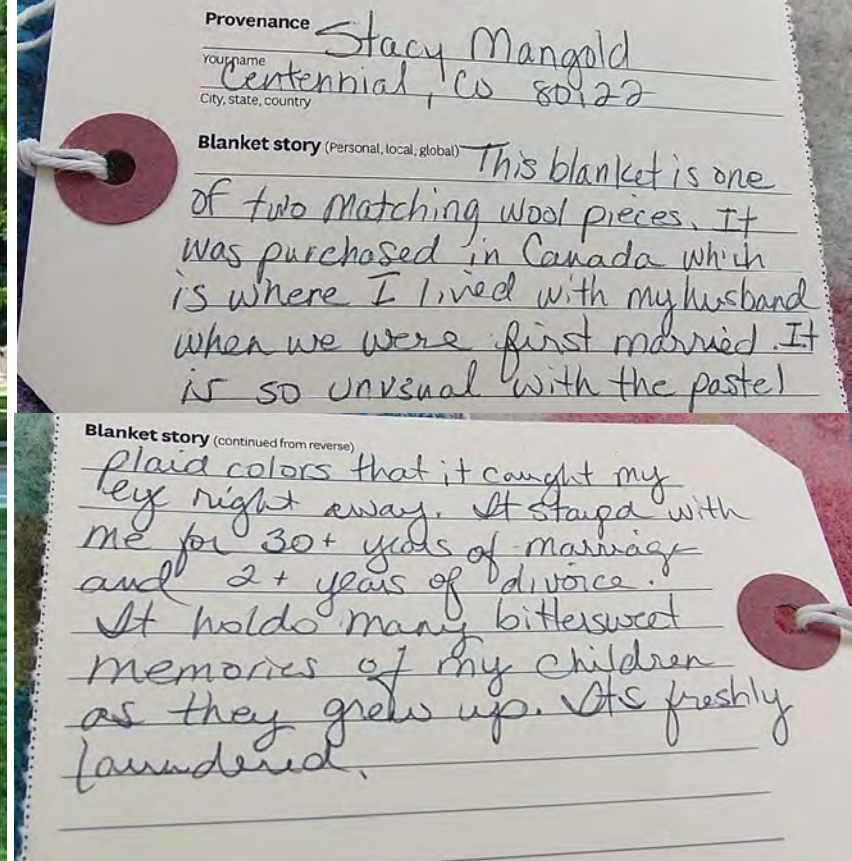 Provenance Stacy Mangold
Your name
Centennial, CO 80122
City, state, country
Blanket story (Personal, local, global) This blanket is one
of two matching wool pieces. It
was purchased in Canada which
is where I lived with my husband
when we were first married. It
is so unusual with the pastel
Blanket story (continued from reverse)
plaid colors that it caught my
eye right away. It stayed with
me for 30+ years of marriage
and 2+ years of divorce.
It holds many bittersweet
memories of my children
as they grew up. Its freshly
laundered.